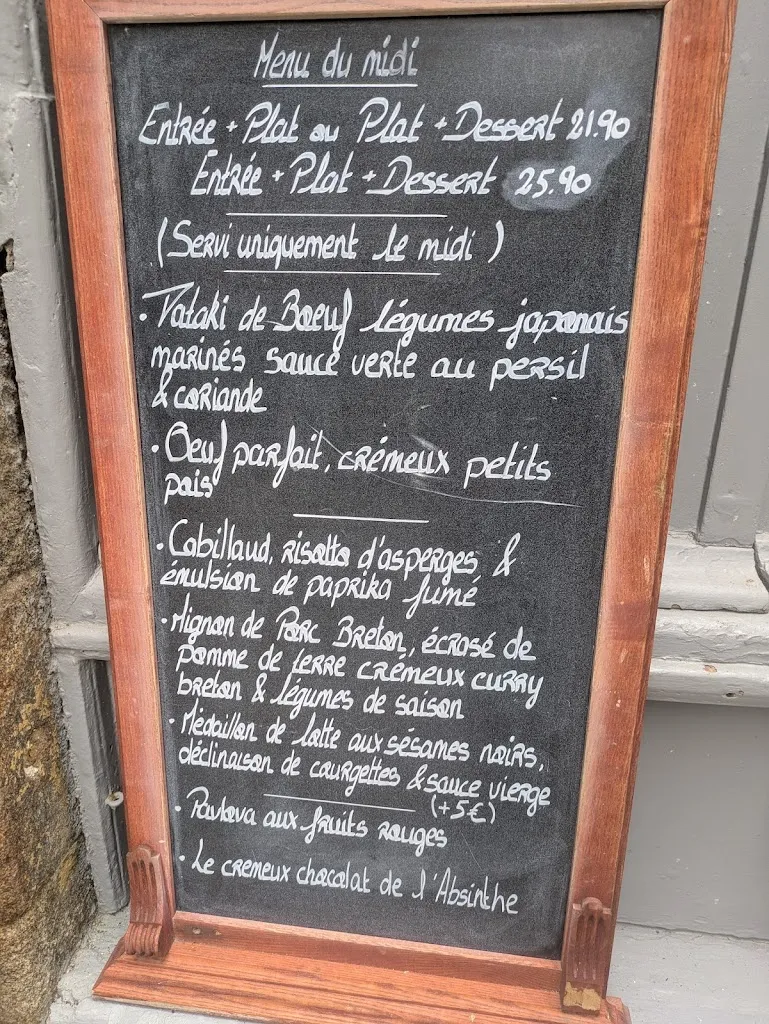 Menu du midi
Entrée + Plat ou Plat + Dessert 21.90
Entrée + Plat + Dessert 25.90
(Servi uniquement le midi)
• Tataki de Boeuf légumes japonais
marinés sauce verte au persil
& coriande
• Oeuf parfait, crémeux petits
pois
• Cabillaud, risotto d'asperges &
émulsion de paprika fumé
• Mignon de Porc Breton, écrasé de
pomme de terre crémeux curry
breton & légumes de saison
• Médaillon de lotte aux sésames noirs,
déclinaison de courgettes & sauce vierge
(+5€)
• Pavlova aux fruits rouges
• Le cremeux chocolat de l'Absinthe